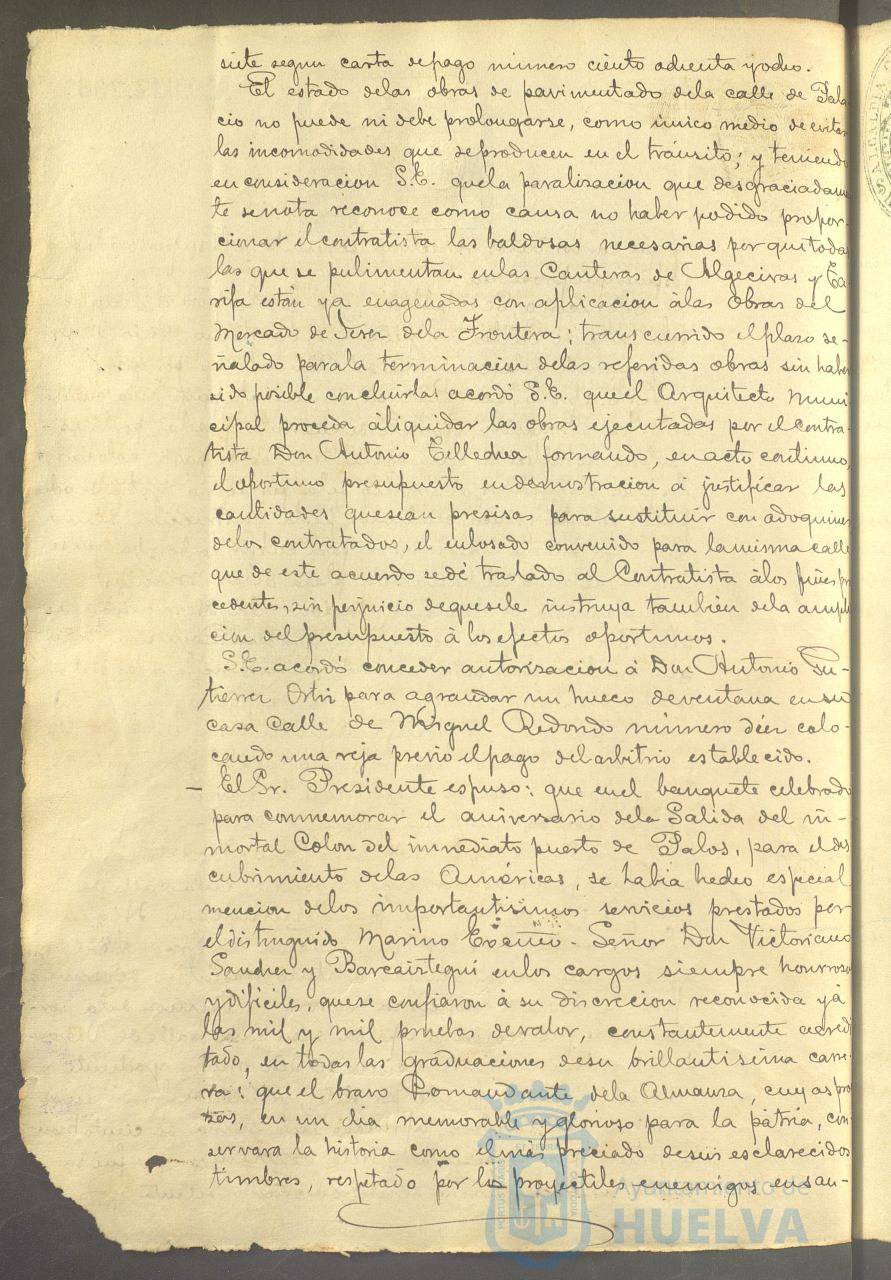 siete segun carta de pago número ciento ochenta y ocho.
El estado de las obras de pavimentado de la calle de Pala
cio no puede ni debe prolongarse, como único medio de evitar
las incomodidades que se producen en el tránsito; y teniendo
en consideracion S.E. que la paralizacion que desgraciadamen
te se nota reconoce como causa no haber podido propor-
cionar el contratista las baldosas necesarias por qué todas
las que se pulimentan en las Canteras de Algeciras y Ta
rifa están ya enagenadas con aplicacion á las Obras del
Mercado de Jerez de la Frontera; transcurrido el plazo se-
ñalado para la terminacion de las referidas obras sin haber
sido posible concluirlas acordó S.E. que el Arquitecto Muni
cipal proceda á liquidar las obras ejecutadas por el contra-
tista Don Antonio Tellechea formando, en acto continuo,
el oportuno presupuesto en demostracion á justificar las
cantidades que sean presisas para sustituir con adoquines
de los contratados, el enlosado convenido para la misma calle
que de este acuerdo se dé traslado al Contratista á los fines pro
cedentes, sin perjuicio de que se le instruya tambien de la ampli
cion del presupuesto á los efectos oportunos.
S.E. acordó conceder autorizacion á Don Antonio Gu-
tierrez Ortiz para agrandar un hueco de ventana en su
casa Calle de Miguel Redondo número diez colo-
cando una reja previo el pago del arbitrio establecido.
— El Sr. Presidente espuso: que en el banquete celebrado
para conmemorar el aniversario de la Salida del in-
mortal Colon del inmediato puerto de Palos, para el des
cubrimiento de las Américas, se habia hecho especial
mencion de los importantisimos servicios prestados por
el distinguido Marino Excmo. Señor Don Victoriano
Sanchez y Barcaiztegui en los cargos siempre honrosos
y dificiles, que se confiaron á su discrecion reconocida y á
las mil y mil pruebas de valor, constantemente acredi
tado, en todas las graduaciones de su brillantisima carre-
ra: que el bravo Comandante de la Almansa, cuyas proe
zas, en un dia memorable y glorioso para la pátria, con
servara la historia como el más preciado de sus esclarecidos
timbres, respetado por los proyectiles enemigos en san-
Ayuntamiento de
HUELVA